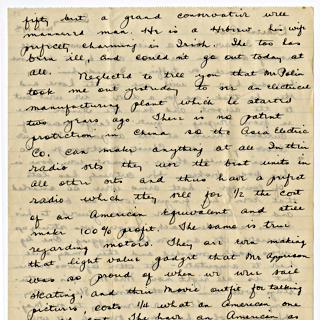 fifty but a grand conservative well
mannered man. He is a Hebrew, his wife
perfectly charming is Irish. She too has
been ill, and could n't go out today at
all. Neglected to tell you that Mr
took me out yesterday to see an electrical
manufacturing plant which he started
two years ago. There is no patent
protection in China so the Asia Electric
Co. can make anything at all. In their
radio sets they use the best units in
all other sets and thus have a perfect
radio which they sell for 1/2 the cost
of an American equivalent and still
make 100% profit. The same is true
regarding motors. They are even making
that light value gadget that Mr
was so proud of when we were sail
skating, and their Movie outfit for talking
pictures, costs 1/4 what an American one
cost. The have an American as